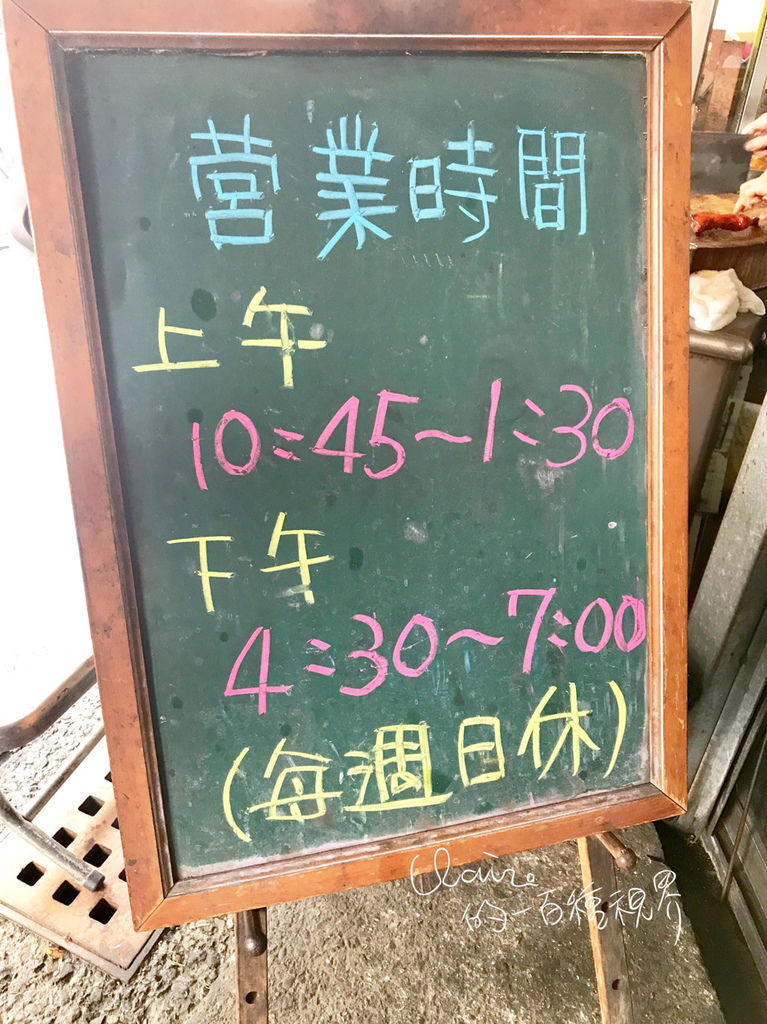 營業時間
上午
10:45~1:30
下午
4:30~7:00
(每週日休)
Claire
的一百種視界